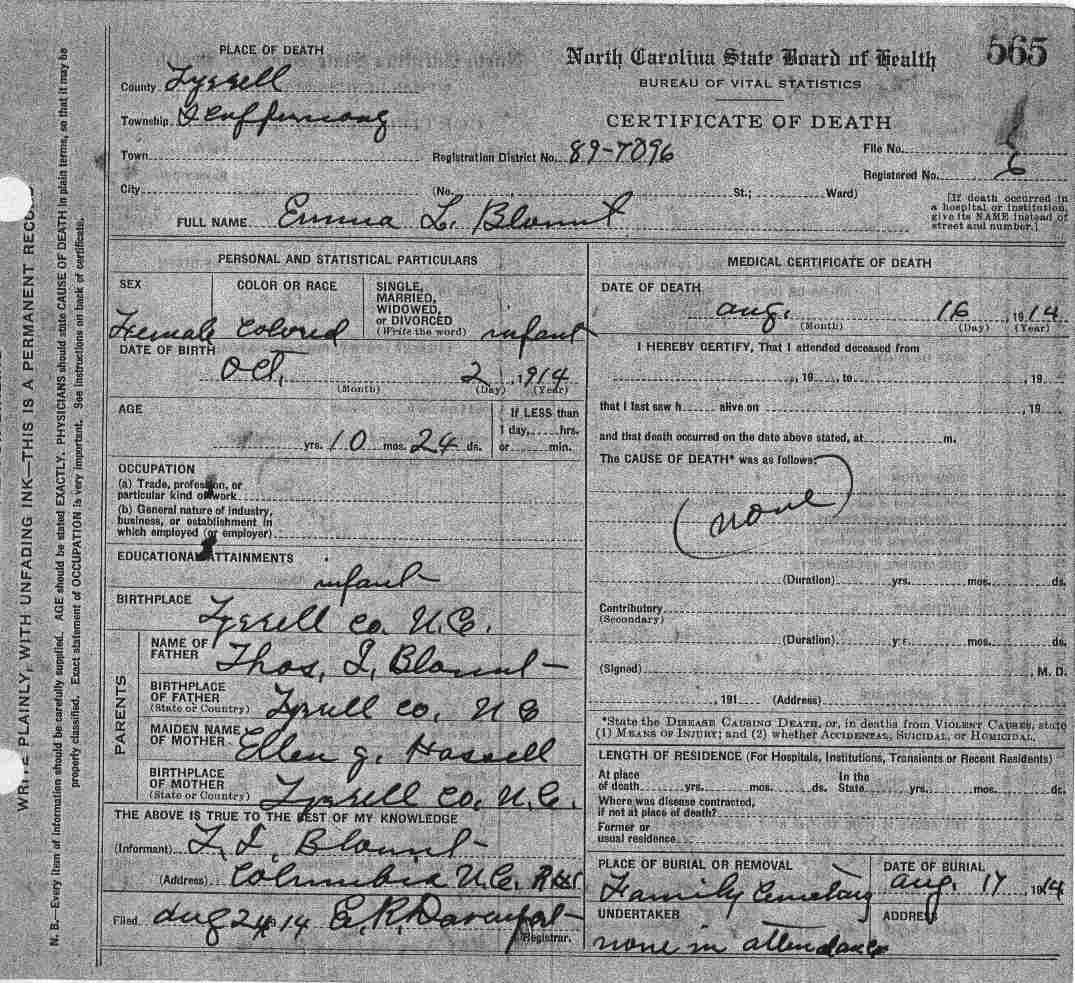 565
North Carolina State Board of Health
BUREAU OF VITAL STATISTICS
CERTIFICATE OF DEATH
PLACE OF DEATH
County Tyrrell
Township
Town
Registration District No. 89-7096
File No.
Registered No. 6
City (No. St.; Ward)
[If death occurred in
a hospital or institution,
give its NAME instead of
street and number.]
FULL NAME Emma L. Blount
PERSONAL AND STATISTICAL PARTICULARS
SEX
Female
COLOR OR RACE
Colored
SINGLE,
MARRIED,
WIDOWED,
or DIVORCED
(Write the word) infant
DATE OF BIRTH
Oct, 2, 1914
(Month) (Day) (Year)
AGE
yrs. 10 mos. 24 ds.
If LESS than
1 day, hrs.
or min.
OCCUPATION
(a) Trade, profession, or
particular kind of work
(b) General nature of industry,
business, or establishment in
which employed (or employer)
EDUCATIONAL ATTAINMENTS
infant
BIRTHPLACE
Tyrrell Co. N.C.
PARENTS
NAME OF
FATHER Thos, I, Blount
BIRTHPLACE
OF FATHER
(State or Country) Tyrrell Co, N C
MAIDEN NAME
OF MOTHER Ellen J. Hassell
BIRTHPLACE
OF MOTHER
(State or Country) Tyrrell Co, N.C.
THE ABOVE IS TRUE TO THE BEST OF MY KNOWLEDGE
(Informant) T. I. Blount
(Address) Columbia N.C.
Filed Aug 24 14 E. R. Davenport
Registrar.
MEDICAL CERTIFICATE OF DEATH
DATE OF DEATH
Aug. 16, 1914
(Month) (Day) (Year)
I HEREBY CERTIFY, That I attended deceased from
, 19 , to , 19
that I last saw h alive on , 19
and that death occurred on the date above stated, at m.
The CAUSE OF DEATH* was as follows:
(none)
(Duration) yrs. mos. ds.
Contributory
(Secondary)
(Duration) yrs. mos. ds.
(Signed) , M. D.
, 191 (Address)
*State the DISEASE CAUSING DEATH, or, in deaths from VIOLENT CAUSES, state
(1) MEANS OF INJURY; and (2) whether ACCIDENTAL, SUICIDAL, or HOMICIDAL.
LENGTH OF RESIDENCE (For Hospitals, Institutions, Transients or Recent Residents)
At place
of death yrs. mos. ds.
In the
State yrs. mos. ds.
Where was disease contracted,
if not at place of death?
Former or
usual residence
PLACE OF BURIAL OR REMOVAL
Family Cemetary
DATE OF BURIAL
Aug. 17, 1914
UNDERTAKER
none in attendance
ADDRESS
WRITE PLAINLY, WITH UNFADING INK—THIS IS A PERMANENT RECORD
N. B.—Every item of information should be carefully supplied. AGE should be stated EXACTLY. PHYSICIANS should state CAUSE OF DEATH in plain terms, so that it may be
properly classified. Exact statement of OCCUPATION is very important. See instructions on back of certificate.